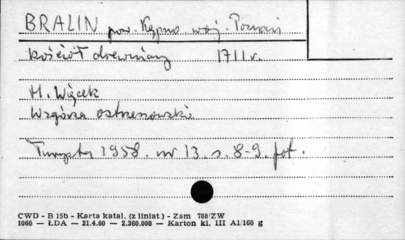 BRALIN pow. Kępno woj. Poznań
kościół drewniany 1711 r.
H. Wącek
Wzgórza ostrzeszowskie
Turysta 1958. nr 13. s. 8-9. fot.
CWD - B 15b - Karta katal. (z liniat.) - Zam 788/ZW
1060 — ŁDA — 21.4.60 — 2.360.000 — Karton kl. III A1/160 g